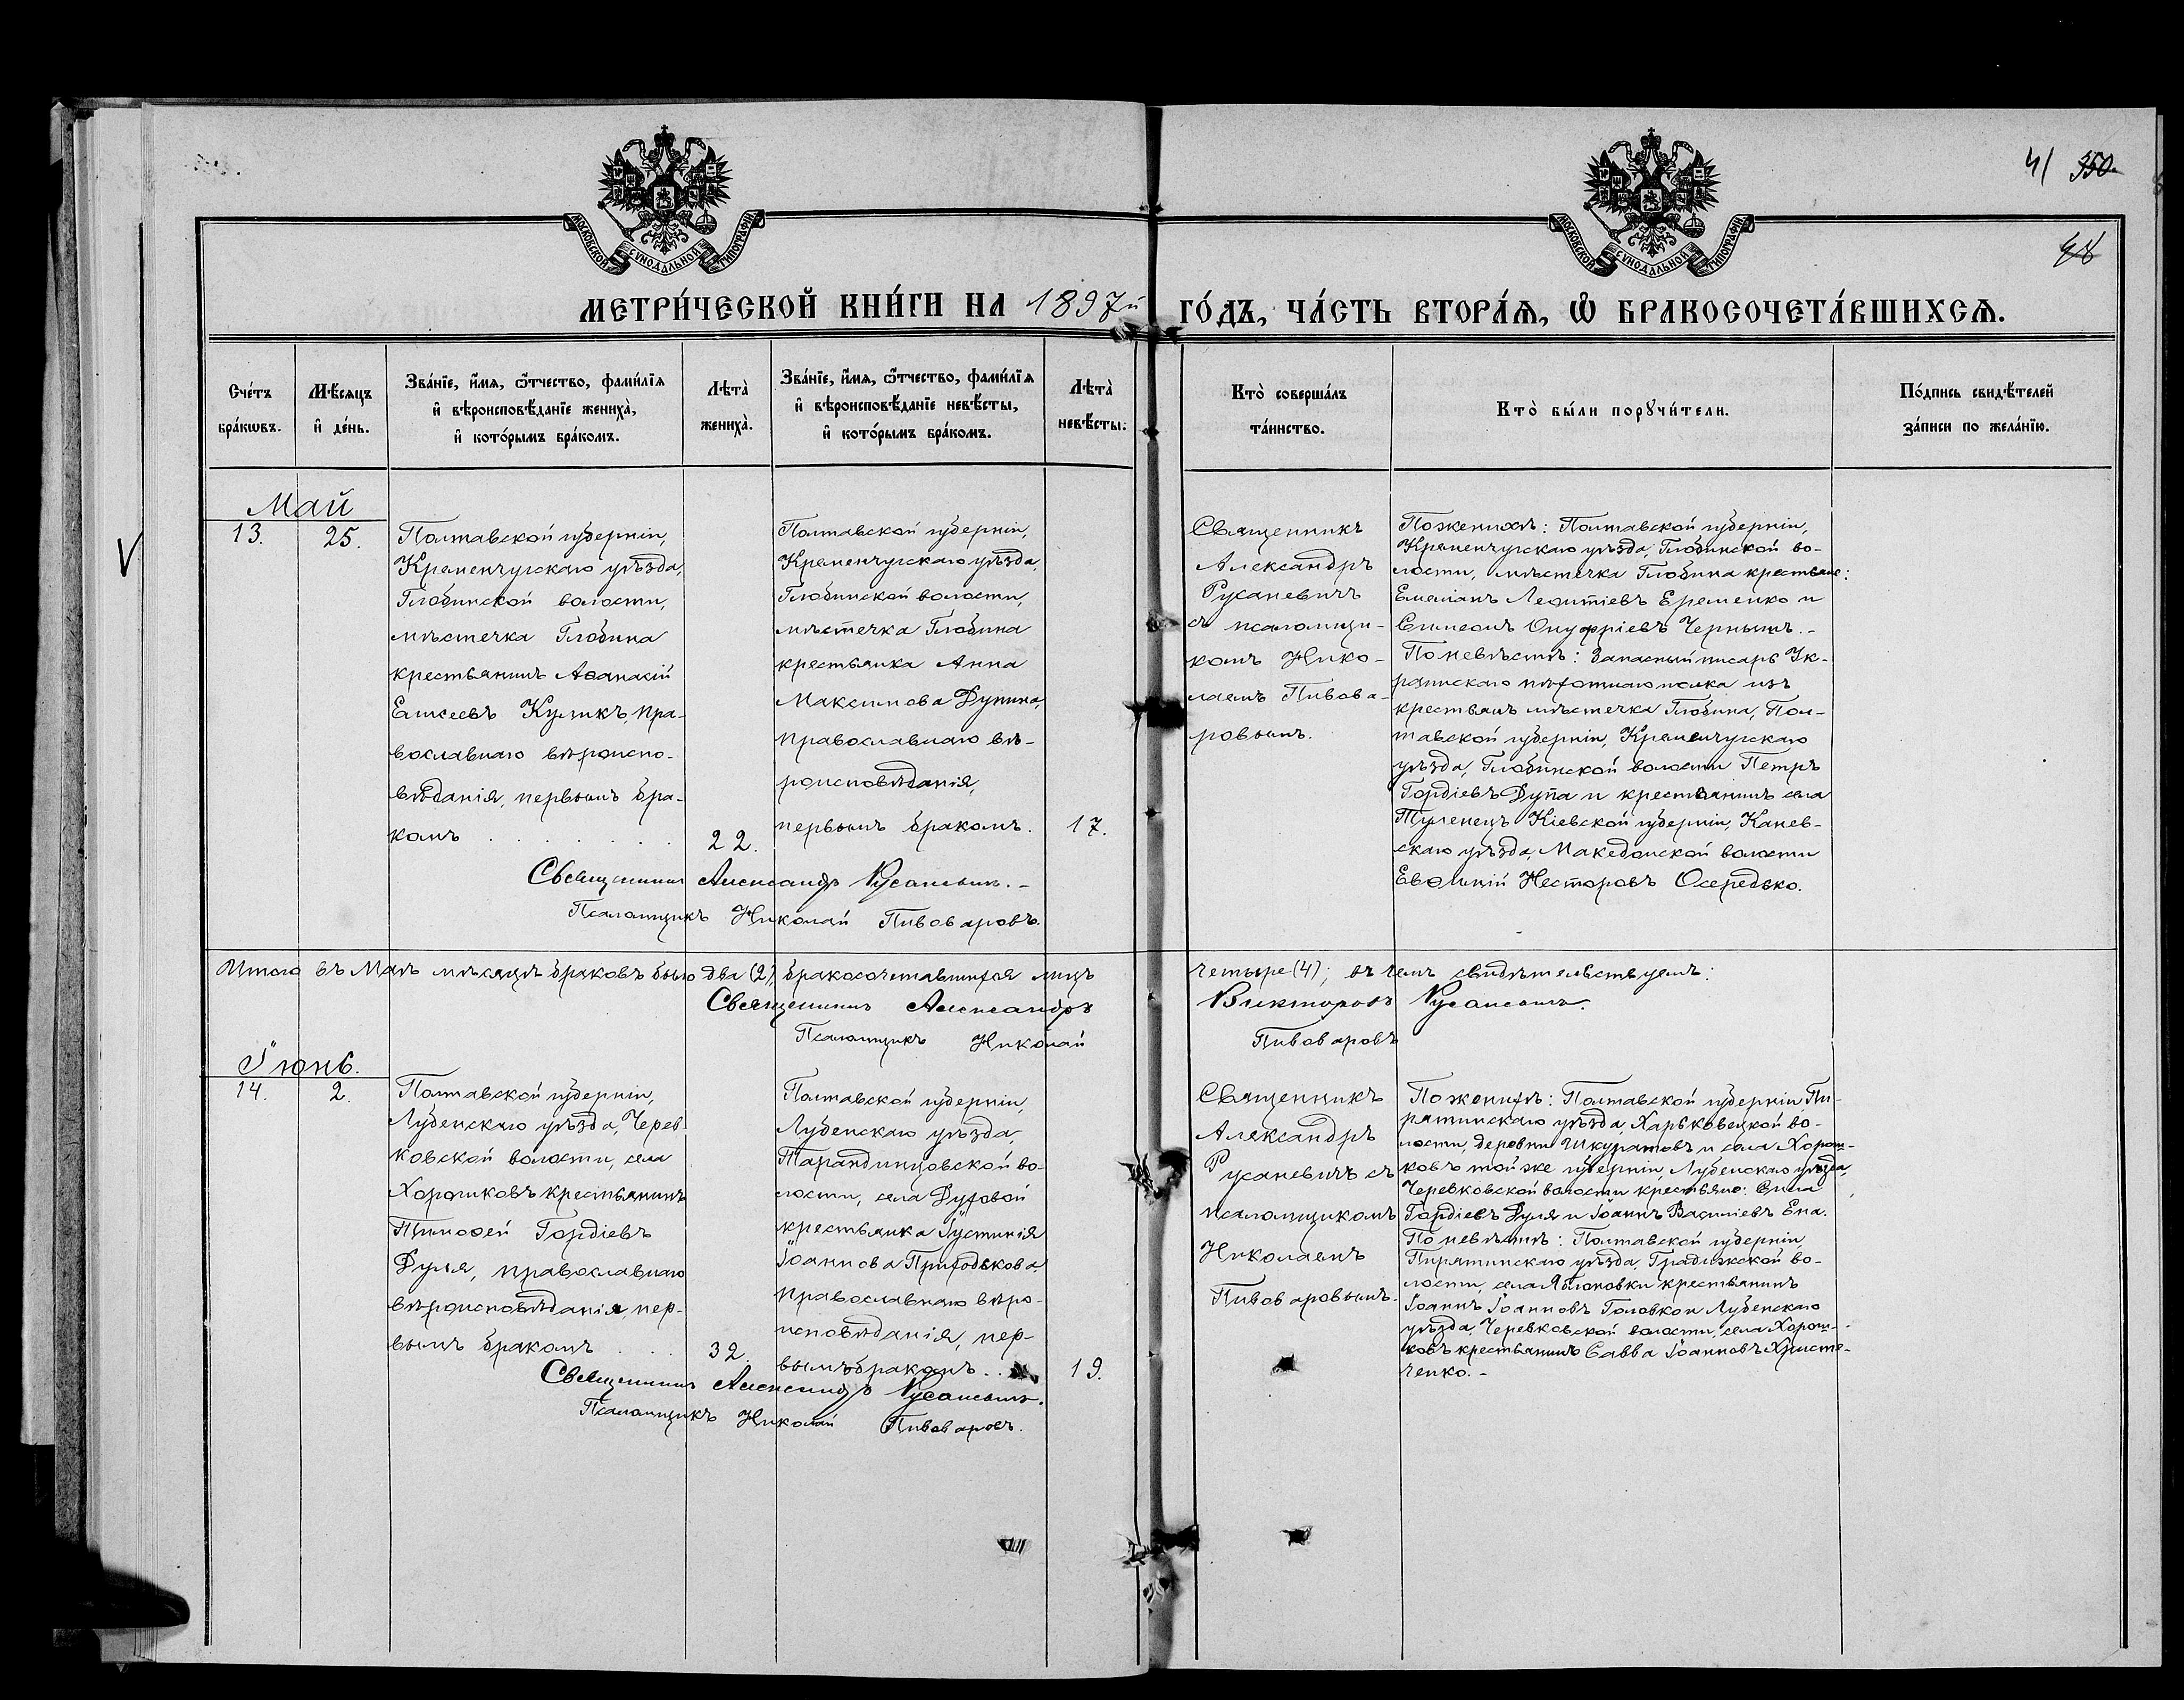 41 350.
48
МОСКОВСКОЙ СѴНОДАЛЬНОЙ ТИПОГРАФІИ
МОСКОВСКОЙ СѴНОДАЛЬНОЙ ТИПОГРАФІИ
МЕТРИ́ЧЕСКОЙ КНИ́ГИ НА 1897й ГО́ДЪ, ЧА́СТЬ ВТОРА́Ѧ, Ѽ БРАКОСОЧЕТА́ВШИХСѦ.
Сче́тъ
бра́кѡвъ.
Мѣ́сяцъ
и҆ де́нь.
Зва́нїе, и҆́мѧ, ѻ҆́тчество, фами́лїѧ
и҆ вѣроисповѣ́данїе жениха̀,
и҆ кото́рымъ бра́комъ.
Лѣта̀
жениха̀.
Зва́нїе, и҆́мѧ, ѻ҆́тчество, фами́лїѧ
и҆ вѣроисповѣ́данїе невѣ́сты,
и҆ кото́рымъ бра́комъ.
Лѣта̀
невѣ́сты.
Кто̀ соверша́лъ
та́инство.
Кто̀ бы́ли порꙋчи́тели.
По́дпись свидѣ́телей
за́писи по жела́нїю.
Май
13.
25.
Полтавской губерніи,
Кременчугскаго уѣзда,
Глобинской волости,
мѣстечка Глобина
крестьянинъ Аѳанасій
Елисеевъ Куликъ, пра-
вославнаго вѣроиспо-
вѣданія, первымъ бра-
комъ . . . . . . .
22.
Полтавской губерніи,
Кременчугскаго уѣзда,
Глобинской волости,
мѣстечка Глобина
крестьянка Анна
Максимова Дупина,
православнаго вѣ-
роисповѣданія,
первымъ бракомъ.
17.
Священникъ
Александръ
Русаневичъ
съ псаломщи-
комъ Нико-
лаемъ Пивова-
ровымъ.
По женихѣ: Полтавской губерніи,
Кременчугскаго уѣзда, Глобинской во-
лости, мѣстечка Глобина крестьяне:
Емеліанъ Леонтіевъ Еременко и
Симеонъ Онуфріевъ Чернышъ.-
По невѣстѣ: Запасный писарь Ук-
раинскаго пѣхотнаго полка изъ
крестьянъ мѣстечка Глобина, Пол-
тавской губерніи, Кременчугскаго
уѣзда, Глобинской волости Петръ
Гордіевъ Дупа и крестьянинъ села
Тулинецъ Кіевской губерніи, Канев-
скаго уѣзда, Македонской волости
Евѳимій Несторовъ Осередько.
Священникъ Александръ Русаневичъ.-
Псаломщикъ Николай Пивоваровъ.
Итого въ Маѣ мѣсяцѣ браковъ было два (2), бракосочетавшихся лицъ четыре (4); въ чемъ свидѣтельствуемъ:
Священникъ Александръ Викторовъ Русаневичъ.
Псаломщикъ Николай Пивоваровъ
Іюнь.
14.
2.
Полтавской губерніи,
Лубенскаго уѣзда, Черев
ковской волости, села
Хорошковъ крестьянинъ
Тимоѳей Гордіевъ
Дуля, православнаго
вѣроисповѣданія, пер-
вымъ бракомъ . . .
32.
Полтавской губерніи,
Лубенскаго уѣзда,
Тарандинцовской во-
лости, села Духовой
крестьянка Іустинія
Іоаннова Приходькова,
православнаго вѣро-
исповѣданія, пер-
вымъ бракомъ . .
19.
Священникъ
Александръ
Русаневичъ съ
псаломщикомъ
Николаемъ
Пивоваровымъ.
По женихѣ: Полтавской губерніи Пи-
рятинскаго уѣзда, Харьковецкой во-
лости, деревни Шкуратовъ и села Хорош-
ковъ той же губерніи, Лубенскаго уѣзда,
Черевковской волости крестьяне: Сила
Гордіевъ Дуля и Іоаннъ Василіевъ Ена.
По невѣстѣ: Полтавской губерніи
Пирятинскаго уѣзда, Градижской во-
лости, села Яблоновки крестьянинъ
Іоаннъ Іоанновъ Головко и Лубенскаго
уѣзда, Черевковской волости, села Хорош-
ковъ крестьянинъ Савва Іоанновъ Христе-
ченко.-
Священникъ Александръ Русаневичъ.
Псаломщикъ Николай Пивоваровъ.